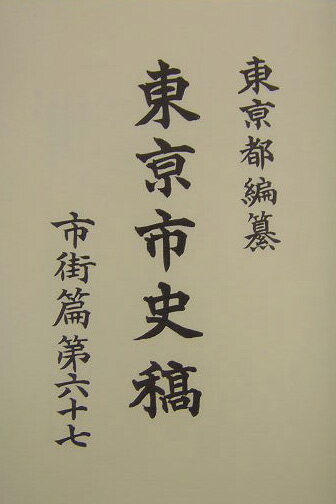 東亰都編纂
東亰市史稿
市街篇第六十七